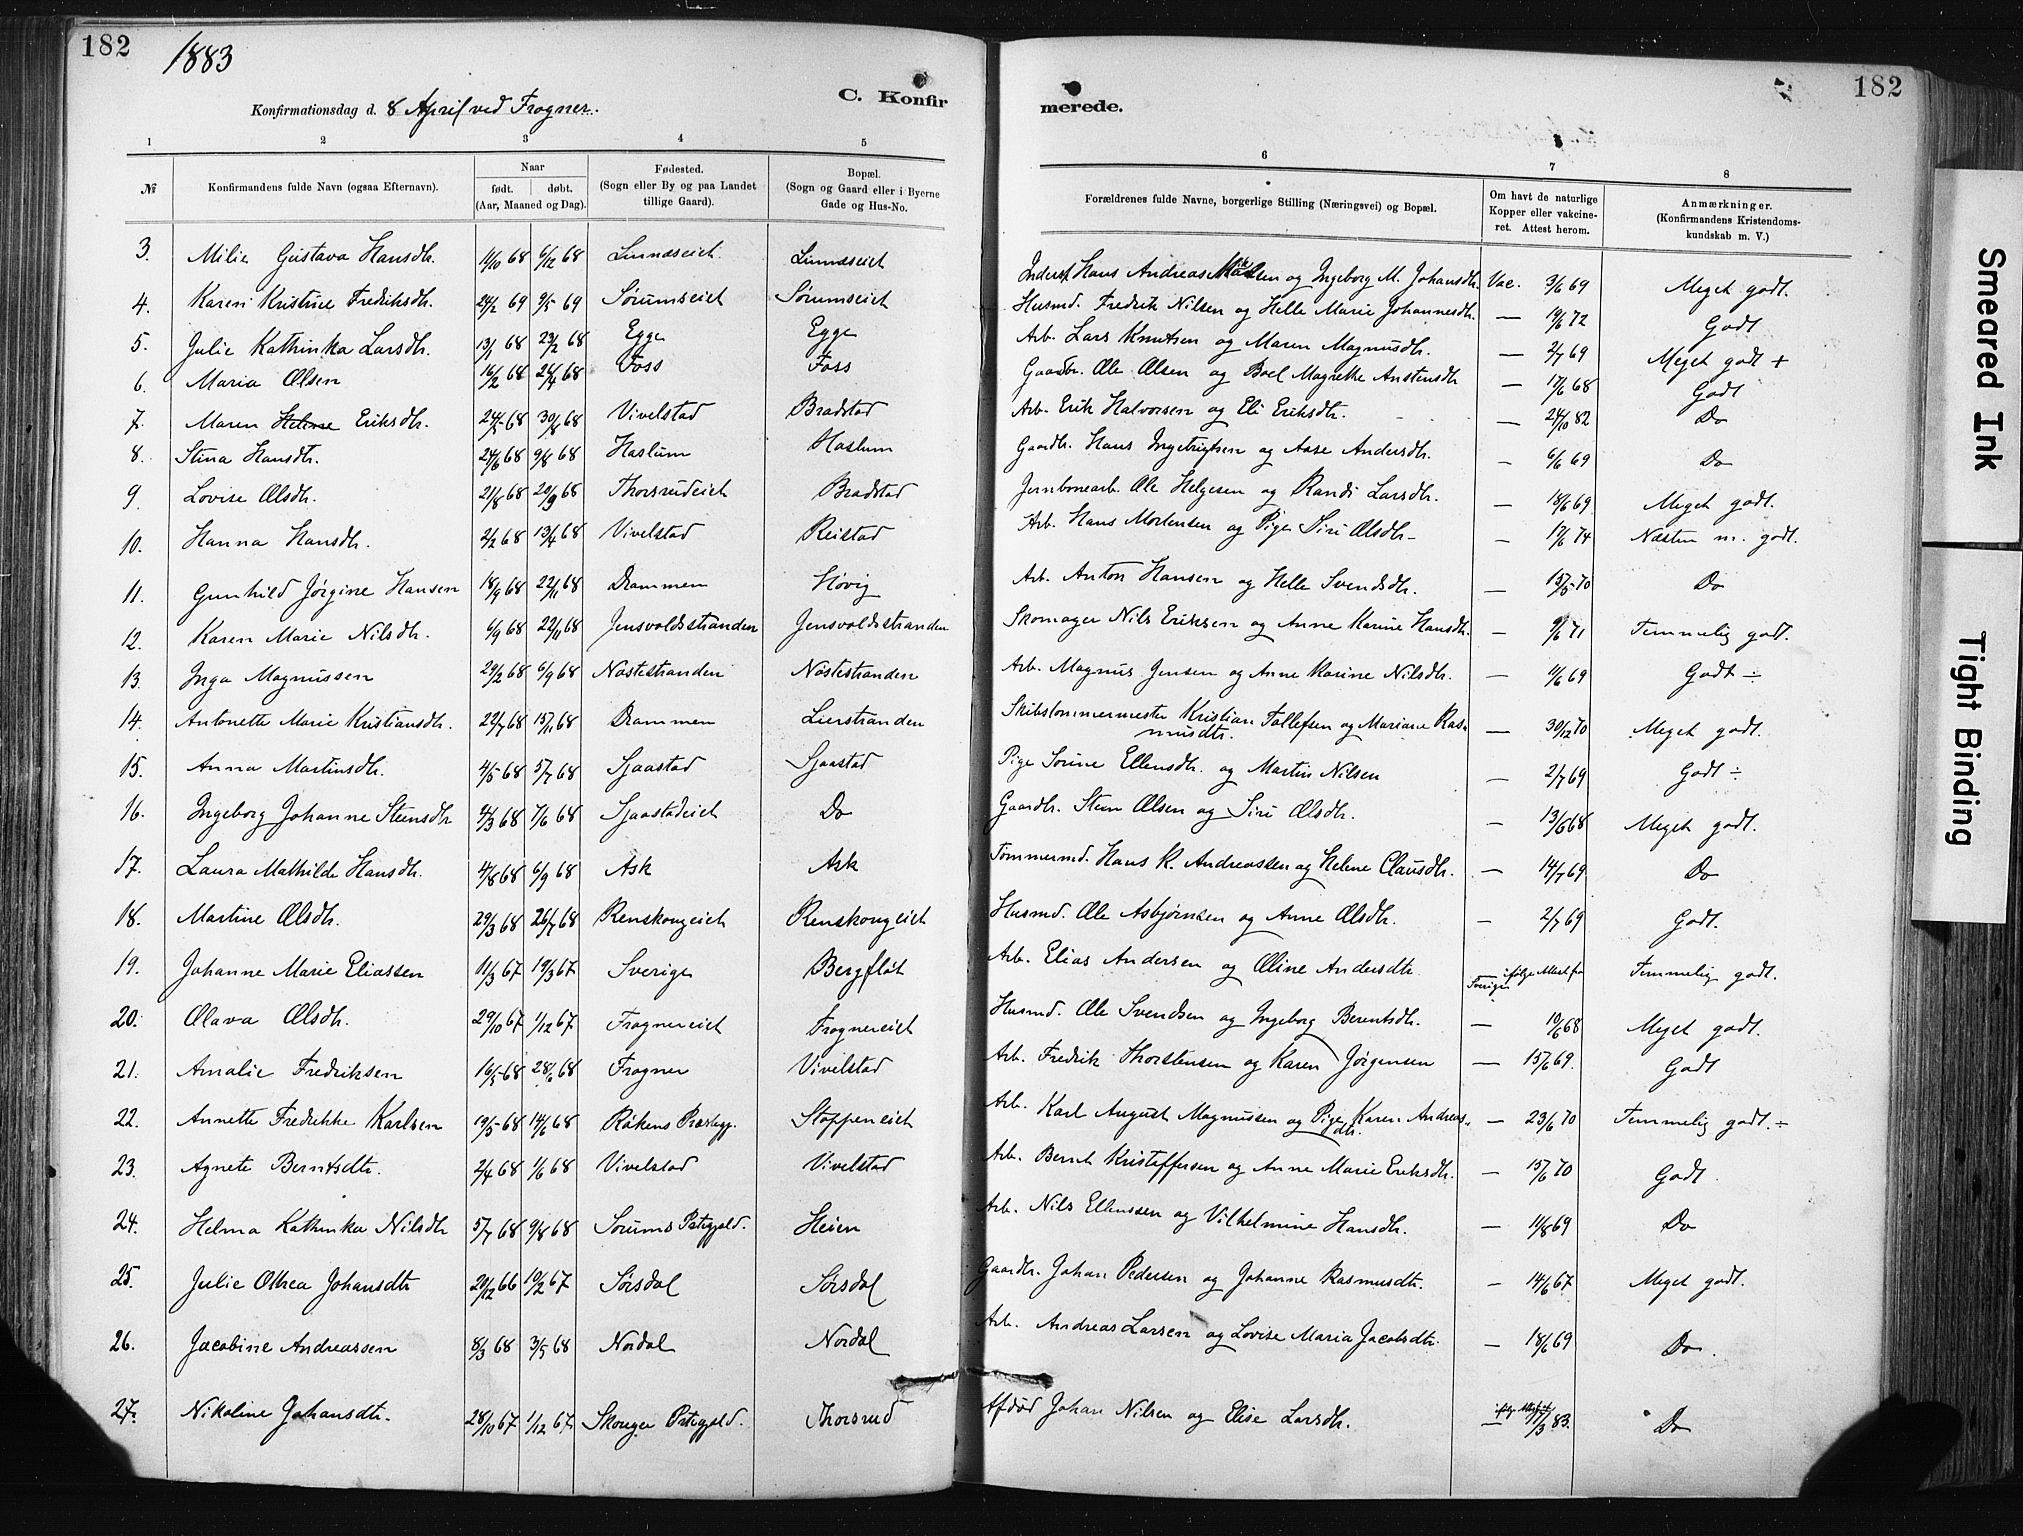 182
1883
C. Konfir
merede.
182
Konfirmationsdag d. 8 April ved Frogner.
1 2 3 4 5 6 7 8
№ Konfirmandens fulde Navn (ogsaa Efternavn). Naar født. døbt. (Aar, Maaned og Dag). Fødested. (Sogn eller By og paa Landet tillige Gaard). Bopæl. (Sogn og Gaard eller i Byerne Gade og Hus-No. Forældrenes fulde Navne, borgerlige Stilling (Næringsvei) og Bopæl. Om havt de naturlige Kopper eller vakcineret. Attest herom. Anmærkninger. (Konfirmandens Kristendomskundskab m. V.)
3. Milie Gustava Hansdtr. 11/10 68 6/12 68 Linnæseiet. Linnæseiet Inderst Hans Andreas og Ingeborg M. Johansdtr. Vac. 3/6 69 Meget godt.
4. Karen Kristine Fredriksdtr. 24/2 69 9/5 69 Sørumseiet Sørumseiet Husmd. Fredrik Nilsen og Helle Marie Johannesdtr. — 19/6 72 Godt
5. Julie Kathinka Larsdtr. 13/1 68 23/2 68 Egge Egge Arb. Lars Knutsen og Maren Magnusdtr. — 2/7 69 Meget godt +
6. Maria Olsen 16/2 68 26/4 68 Foss Foss Gaardbr. Ole Olsen og Boel Magrethe Anstensdtr — 17/6 68 Godt
7. Maren Helene Eriksdtr. 24/5 68 30/8 68 Vivelstad Bradstad Arb. Erik Halvorsen og Eli Eriksdtr. — 24/10 82 Do
8. Stina Hansdtr. 24/6 68 9/8 68 Haslum Haslum Gaardbr. Hans Ingebrigtsen og Aase Andersdtr. — 6/6 69 Do
9. Lovise Olsdtr. 21/8 68 20/9 68 Thorsrudeiet Bradstad Jernbanearb. Ole Helgesen og Randi Larsdtr. — 18/6 69 Meget godt.
10. Hanna Hansdtr. 2/2 68 13/4 68 Vivelstad Reistad Arb. Hans Mortensen og Pige Siri Olsdtr — 17/6 74 Næsten m. godt.
11. Gunhild Jørgine Hansen 18/9 68 22/11 68 Drammen Høvig Arb. Anton Hansen og Helle Svendsdtr. — 15/5 70 Do
12. Karen Marie Nilsdtr. 6/9 68 22/11 68 Jensvoldsstranden Jensvoldsstranden Skomager Nils Eriksen og Anne Karine Hansdtr. — 9/6 71 Temmelig godt.
13. Inga Magnussen 29/2 68 6/9 68 Nøstestranden Nøstestranden Arb. Magnus Jensen og Anne Karine Nilsdtr. — 11/6 69 Godt ÷
14. Antonette Marie Kristiansdtr. 22/7 68 15/11 68 Drammen Lierstranden Skibstømmermester Kristian Tollefsen og Mariane Ras-
musdtr. — 30/12 70 Meget godt.
15. Anna Martinsdtr. 4/5 68 5/7 68 Sjaastad Sjaastad Pige Sørine Ellensdtr. og Martin Nilsen — 2/7 69 Godt ÷
16. Ingeborg Johanne Steensdtr 4/3 68 7/6 68 Sjaastadeiet Do Gaardbr. Steen Olsen og Siri Olsdtr. — 13/6 68 Meget godt.
17. Laura Mathilde Hansdtr. 4/8 68 6/9 68 Ask Ask Tømmermd. Hans K. Andreassen og Helene Clausdtr. — 14/7 69 Do
18. Martine Olsdtr. 29/3 68 26/7 68 Renskougeiet Renskougeiet Husmd. Ole Asbjørnsen og Anne Olsdtr. — 2/7 69 Godt.
19. Johanne Marie Eliassen 11/3 67 19/3 67 Sverige Bergfløt Arb. Elias Andersen og Oline Andersdtr ifølge Attest fra Sverige Temmelig godt.
20. Olava Olsdtr. 29/10 67 1/12 67 Frognereiet Frognereiet Husmd. Ole Svendsen og Ingeborg Berentsdtr. — 10/6 68 Meget godt.
21. Amalie Fredriksen 16/5 68 28/6 68 Frogner Vivelstad Arb. Fredrik Thorstensen og Karen Jørgensen — 15/6 69. Godt
22. Annette Fredrikke Karlsen 19/5 68 14/6 68 Røkens Præstegj. Stoppeneiet Arb. Karl August Magnussen og Pige Karen Andreas-
dtr. — 23/6 70 Temmelig godt. ÷
23. Agnete Berntsdtr. 2/4 68 1/6 68 Vivelstad Vivelstad Arb. Bernt Kristoffersen og Anne Marie Eriksdtr. — 15/6 70 Godt.
24. Helma Kathinka Nilsdtr 5/7 68 9/8 68 Sørums Pstegjeld. Heien Arb. Nils Ellenssen og Vilhelmine Hansdtr. — 11/8 69 Do
25. Julie Othea Johansdtr 29/12 66 10/2 67 Sørsdal Sørsdal Gaardbr. Johan Pedersen og Johanne Rasmusdtr. — 14/6 67 Meget godt.
26. Jacobine Andreassen 8/3 68 3/5 68 Nordal Nordal Arb. Andreas Larsen og Lovise Maria Jacobsdtr. — 18/6 69 Do.
27. Nikoline Johansdtr. 28/10 67 1/12 67 Skouger Pstegjeld. Thorsrud Afdød Johan Nilsen og Elise Larsdtr. — 17/3 83. Do
Smeared Ink
Tight Binding